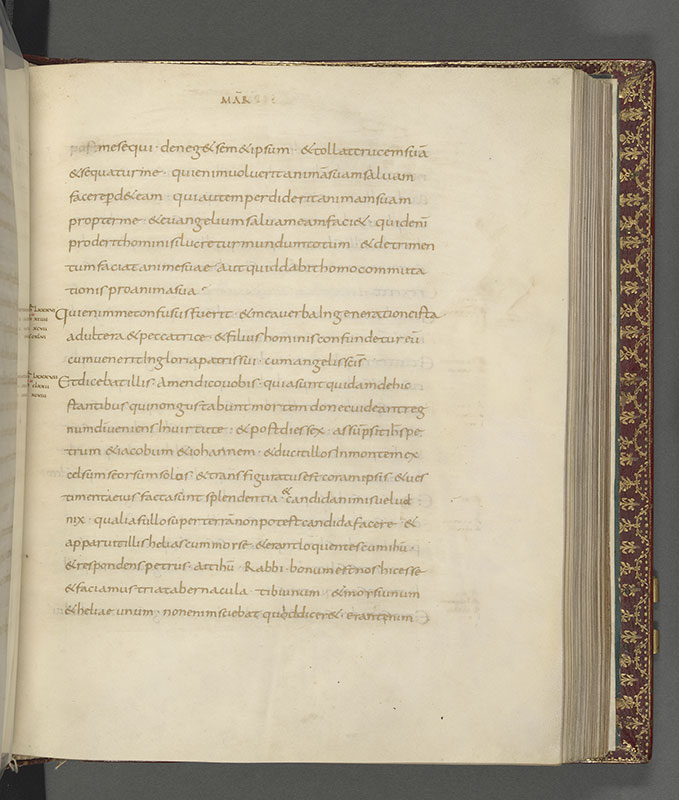 MAR̄
post me sequi · deneg& sem&ipsum · &tollat crucem suā
&sequatur me · qui enim voluerit animā suam salvam
facere pd&eam · qui autem perdiderit animam suam
propter me · &euangelium salvam eam faci& · quid enī
proderit homini si lucretur mundum totum · &detrimen
tum faciat anime suae · aut quid dabit homo commuta
tionis pro anima sua
Qui enim me confusus fuerit · &mea verba In generatione ista
adultera &peccatrice · &filius hominis confundetur eū
cum venerit In gloria patris sui · cum angelis scīs
Et dicebat illis · amen dico vobis · quia sunt quidam de hic
stantibus qui non gustabunt mortem donec videant reg
num dī veniens In virtute : &post dies sex · assūpsit ihs̄ pe
trum &iacobum &iohannem · &ducit illos In montem ex
celsum seorsum solos &transfiguratus est coram ipsis · &ves
timenta eius facta sunt splendentia & candida nimis velud
nix · qualia fullo super terrā non potest candida facere · &
apparuit illis helias cum mose · &erant loquentes cum ihū ·
&respondens petrus · ait ihū · Rabbi · bonum est nos hic esse
&faciamus tria tabernacula · tibi unum · &mosi unum
&heliae unum · non enim sciebat quid dicer& · erant enim